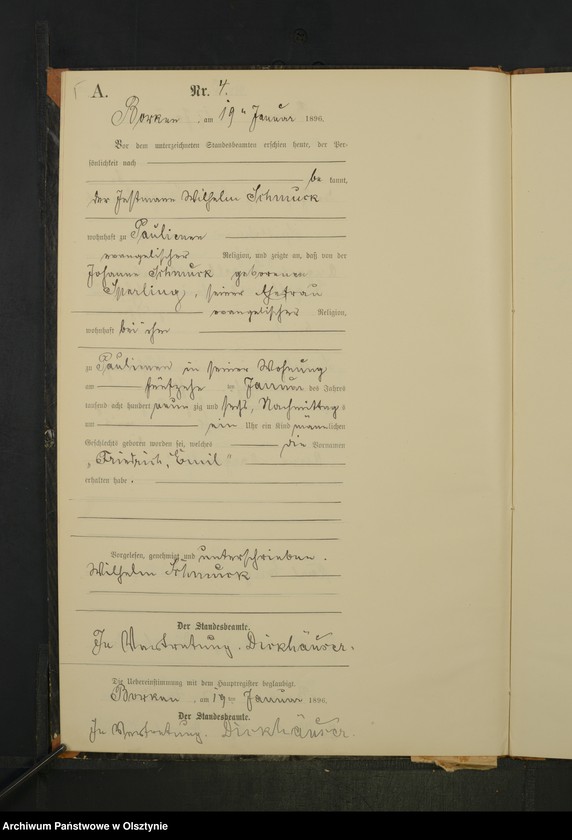 A.
Nr. 4.
Borken, am 19ten Januar 1896.
Vor dem unterzeichneten Standesbeamten erschien heute, der Per-
sönlichkeit nach
be kannt,
der Instmann Wilhelm Schmuck
wohnhaft zu Paulienen
evangelischer Religion, und zeigte an, daß von der
Johanne Schmuck geborenen
Sperling, seiner Ehefrau
evangelischer Religion,
wohnhaft bei ihm
zu Paulienen in seiner Wohnung
am fünfzehn ten Januar des Jahres
tausend acht hundert neun zig und sechs, Nachmittags
um ein Uhr ein Kind männlichen
Geschlechts geboren worden sei, welches die Vornamen
„Friedrich, Emil"
erhalten habe.
Vorgelesen, genehmigt und unterschrieben.
Wilhelm Schmuck
Der Standesbeamte.
In Vertretung. Dirkhäuser.
Die Uebereinstimmung mit dem Hauptregister beglaubigt.
Borken, am 19ten Januar 1896.
Der Standesbeamte.
In Vertretung. Dirkhäuser.
Archiwum Państwowe w Olsztynie